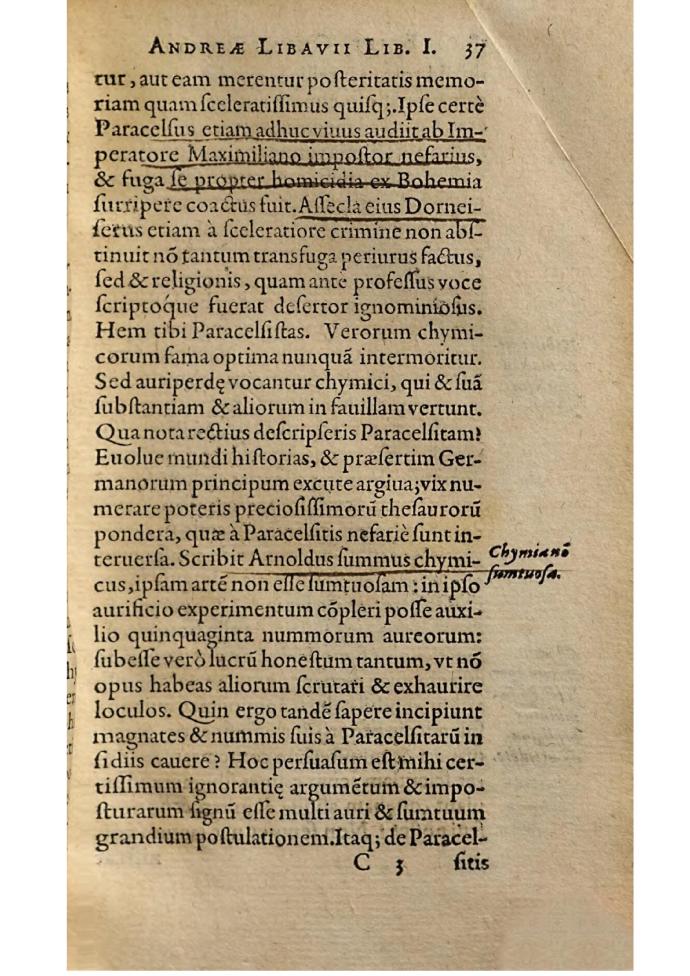 ANDREÆ LIBAVII LIB. I. 37
tur, aut eam merentur poſteritatis memo-
riam quam ſceleratiſſimus quiſq;. Ipſe certè
Paracelſus etiam adhuc viuus audiit ab Im-
peratore Maximiliano impoſtor nefarius,
& fuga ſe propter homicidia ex Bohemia
ſurripere coactus fuit. Aſſecla eius Dornei-
ſerus etiam à ſceleratiore crimine non abſ-
tinuit nõ tantum transfuga periurus factus,
ſed & religionis, quam ante profeſſus voce
ſcriptoq́ue fuerat deſertor ignominioſus.
Hem tibi Paracelſiſtas. Verorum chymi-
corum fama optima nunquã intermoritur.
Sed auriperdę vocantur chymici, qui & ſuã
ſubſtantiam & aliorum in fauillam vertunt.
Qua nota rectius deſcripſeris Paracelſitam?
Euolue mundi hiſtorias, & præſertim Ger-
manorum principum excute argiua; vix nu-
merare poteris precioſiſſimorũ theſaurorũ
pondera, quæ à Paracelſitis nefariè ſunt in-
teruerſa. Scribit Arnoldus ſummus chymi-
cus, ipſam artẽ non eſſe ſumtuoſam: in ipſo
aurificio experimentum cõpleri poſſe auxi-
lio quinquaginta nummorum aureorum:
ſubeſſe verò lucrũ honeſtum tantum, vt nõ
opus habeas aliorum ſcrutari & exhaurire
loculos. Quin ergo tandẽ ſapere incipiunt
magnates & nummis ſuis à Paracelſitarũ in
ſidiis cauere? Hoc perſuaſum eſt mihi cer-
tiſſimum ignorantię argumẽtum & impo-
ſturarum ſignũ eſſe multi auri & ſumtuum
grandium poſtulationem. Itaq; de Paracel-
C 3 ſitis
Chymia nõ
ſumtuoſa.